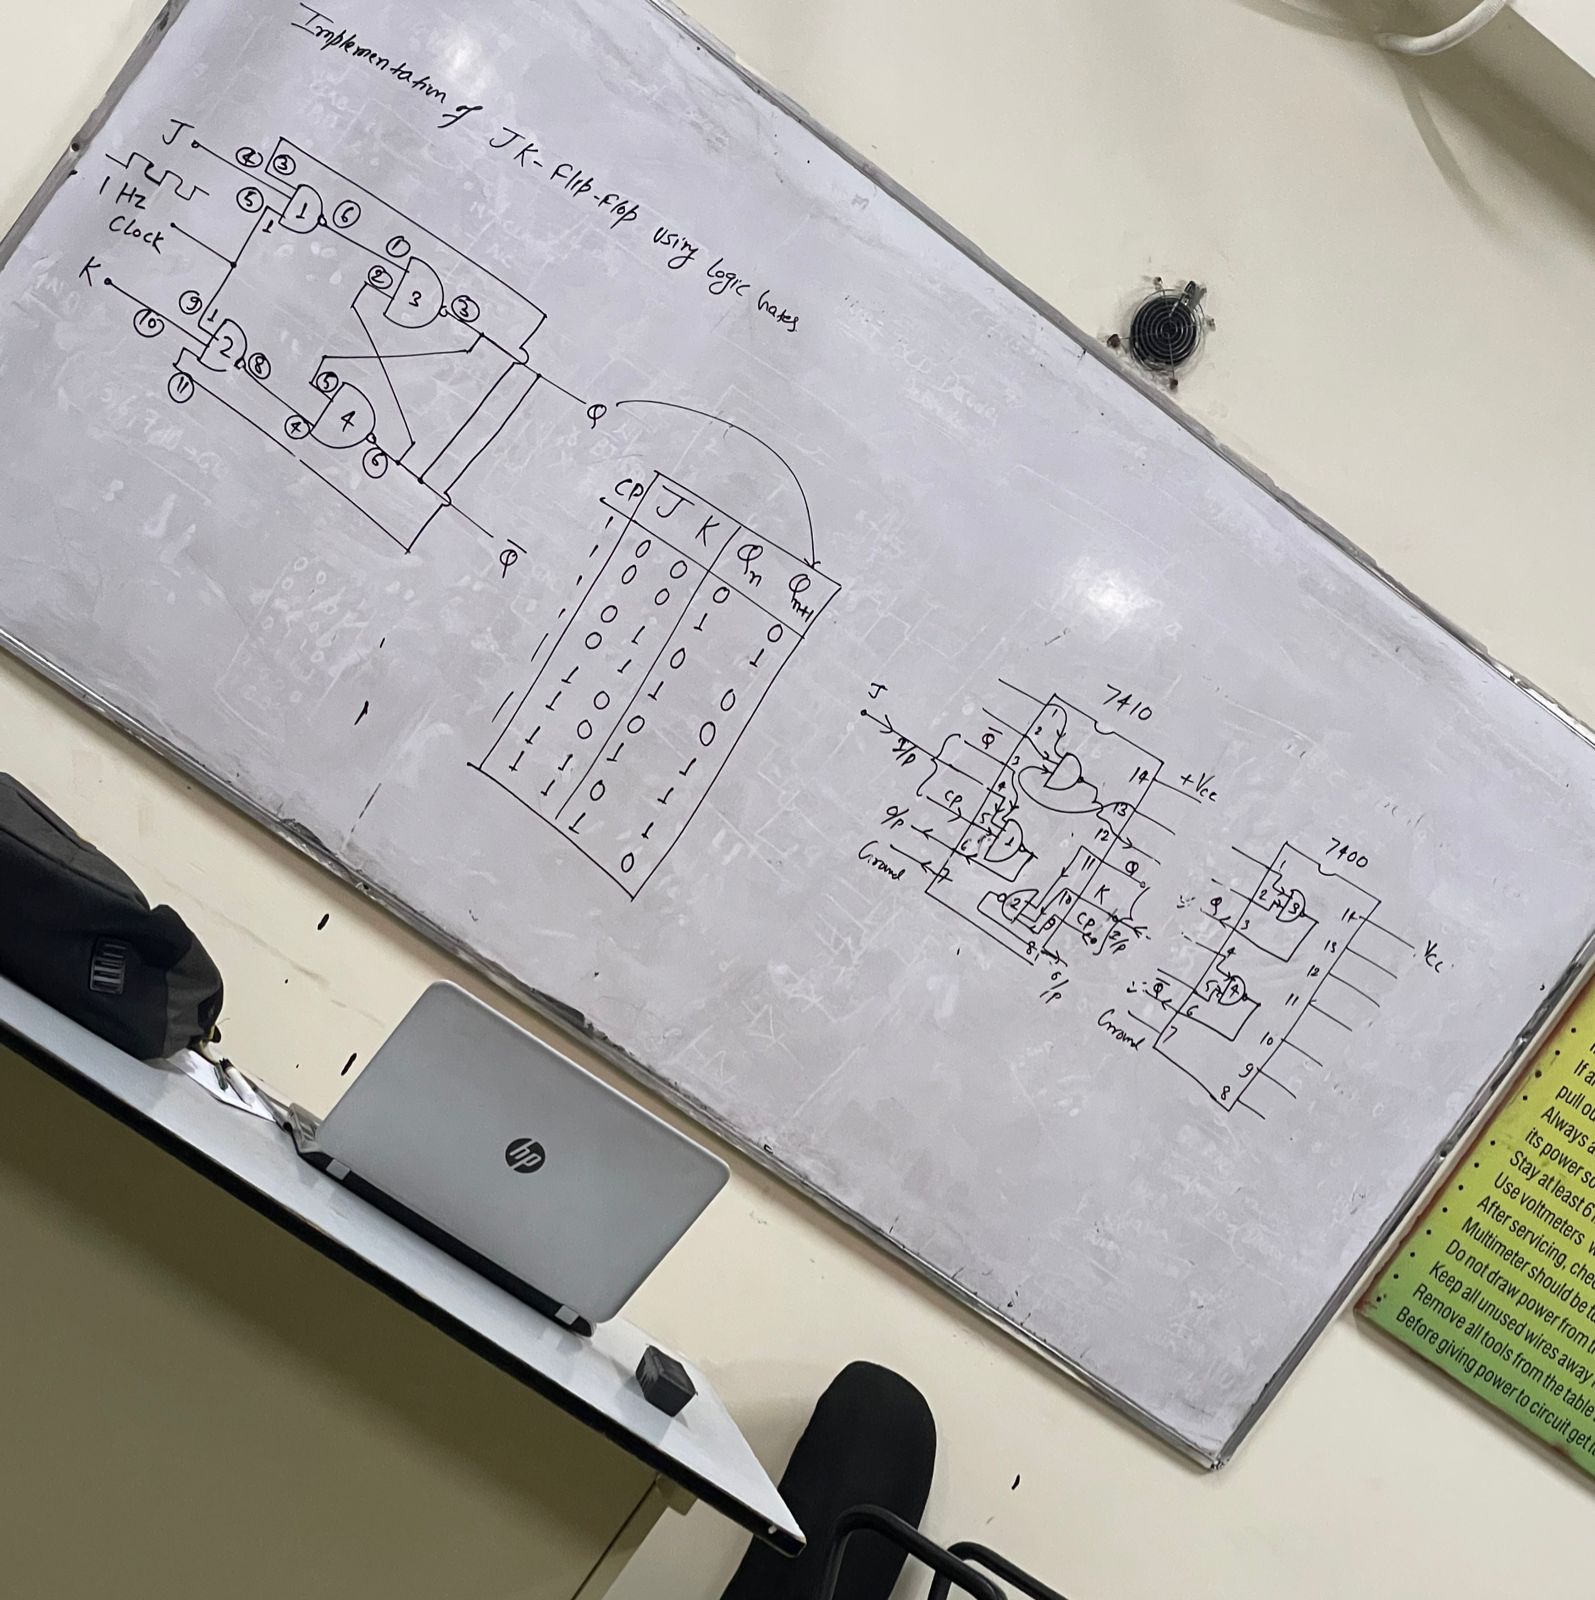 Implementation of JK-Flip-Flop using Logic Gates
J
1 Hz
Clock
K
④ ③
⑤ 1 1 ⑥
① ② 3 ③
⑨ 1
⑩ 2 ⑧
⑪
⑤ 4 ④ ⑥
Q
Q̅
CP J K Qn Qn+1
1 0 0 0 0
1 0 0 1 1
1 0 1 0 0
1 0 1 1 0
1 1 0 0 1
1 1 0 1 1
1 1 1 0 1
1 1 1 1 0
7410
J
I/p
Q̅
CP
O/p
Ground
1
2
3
4
5
6
7
1
2
14 +Vcc
13
12
11 Q
10 K
9 CP
8
I/p
O/p
7400
1
2 3
3 Q
4
5 4
6 Q̅
7 Ground
14 Vcc
13
12
11
10
9
8
hp
If a
pull ou
Always a
its power so
Stay at least 6
Use voltmeters
After servicing, chec
Multimeter should be t
Do not draw power from t
Keep all unused wires away
Remove all tools from the table
Before giving power to circuit get i